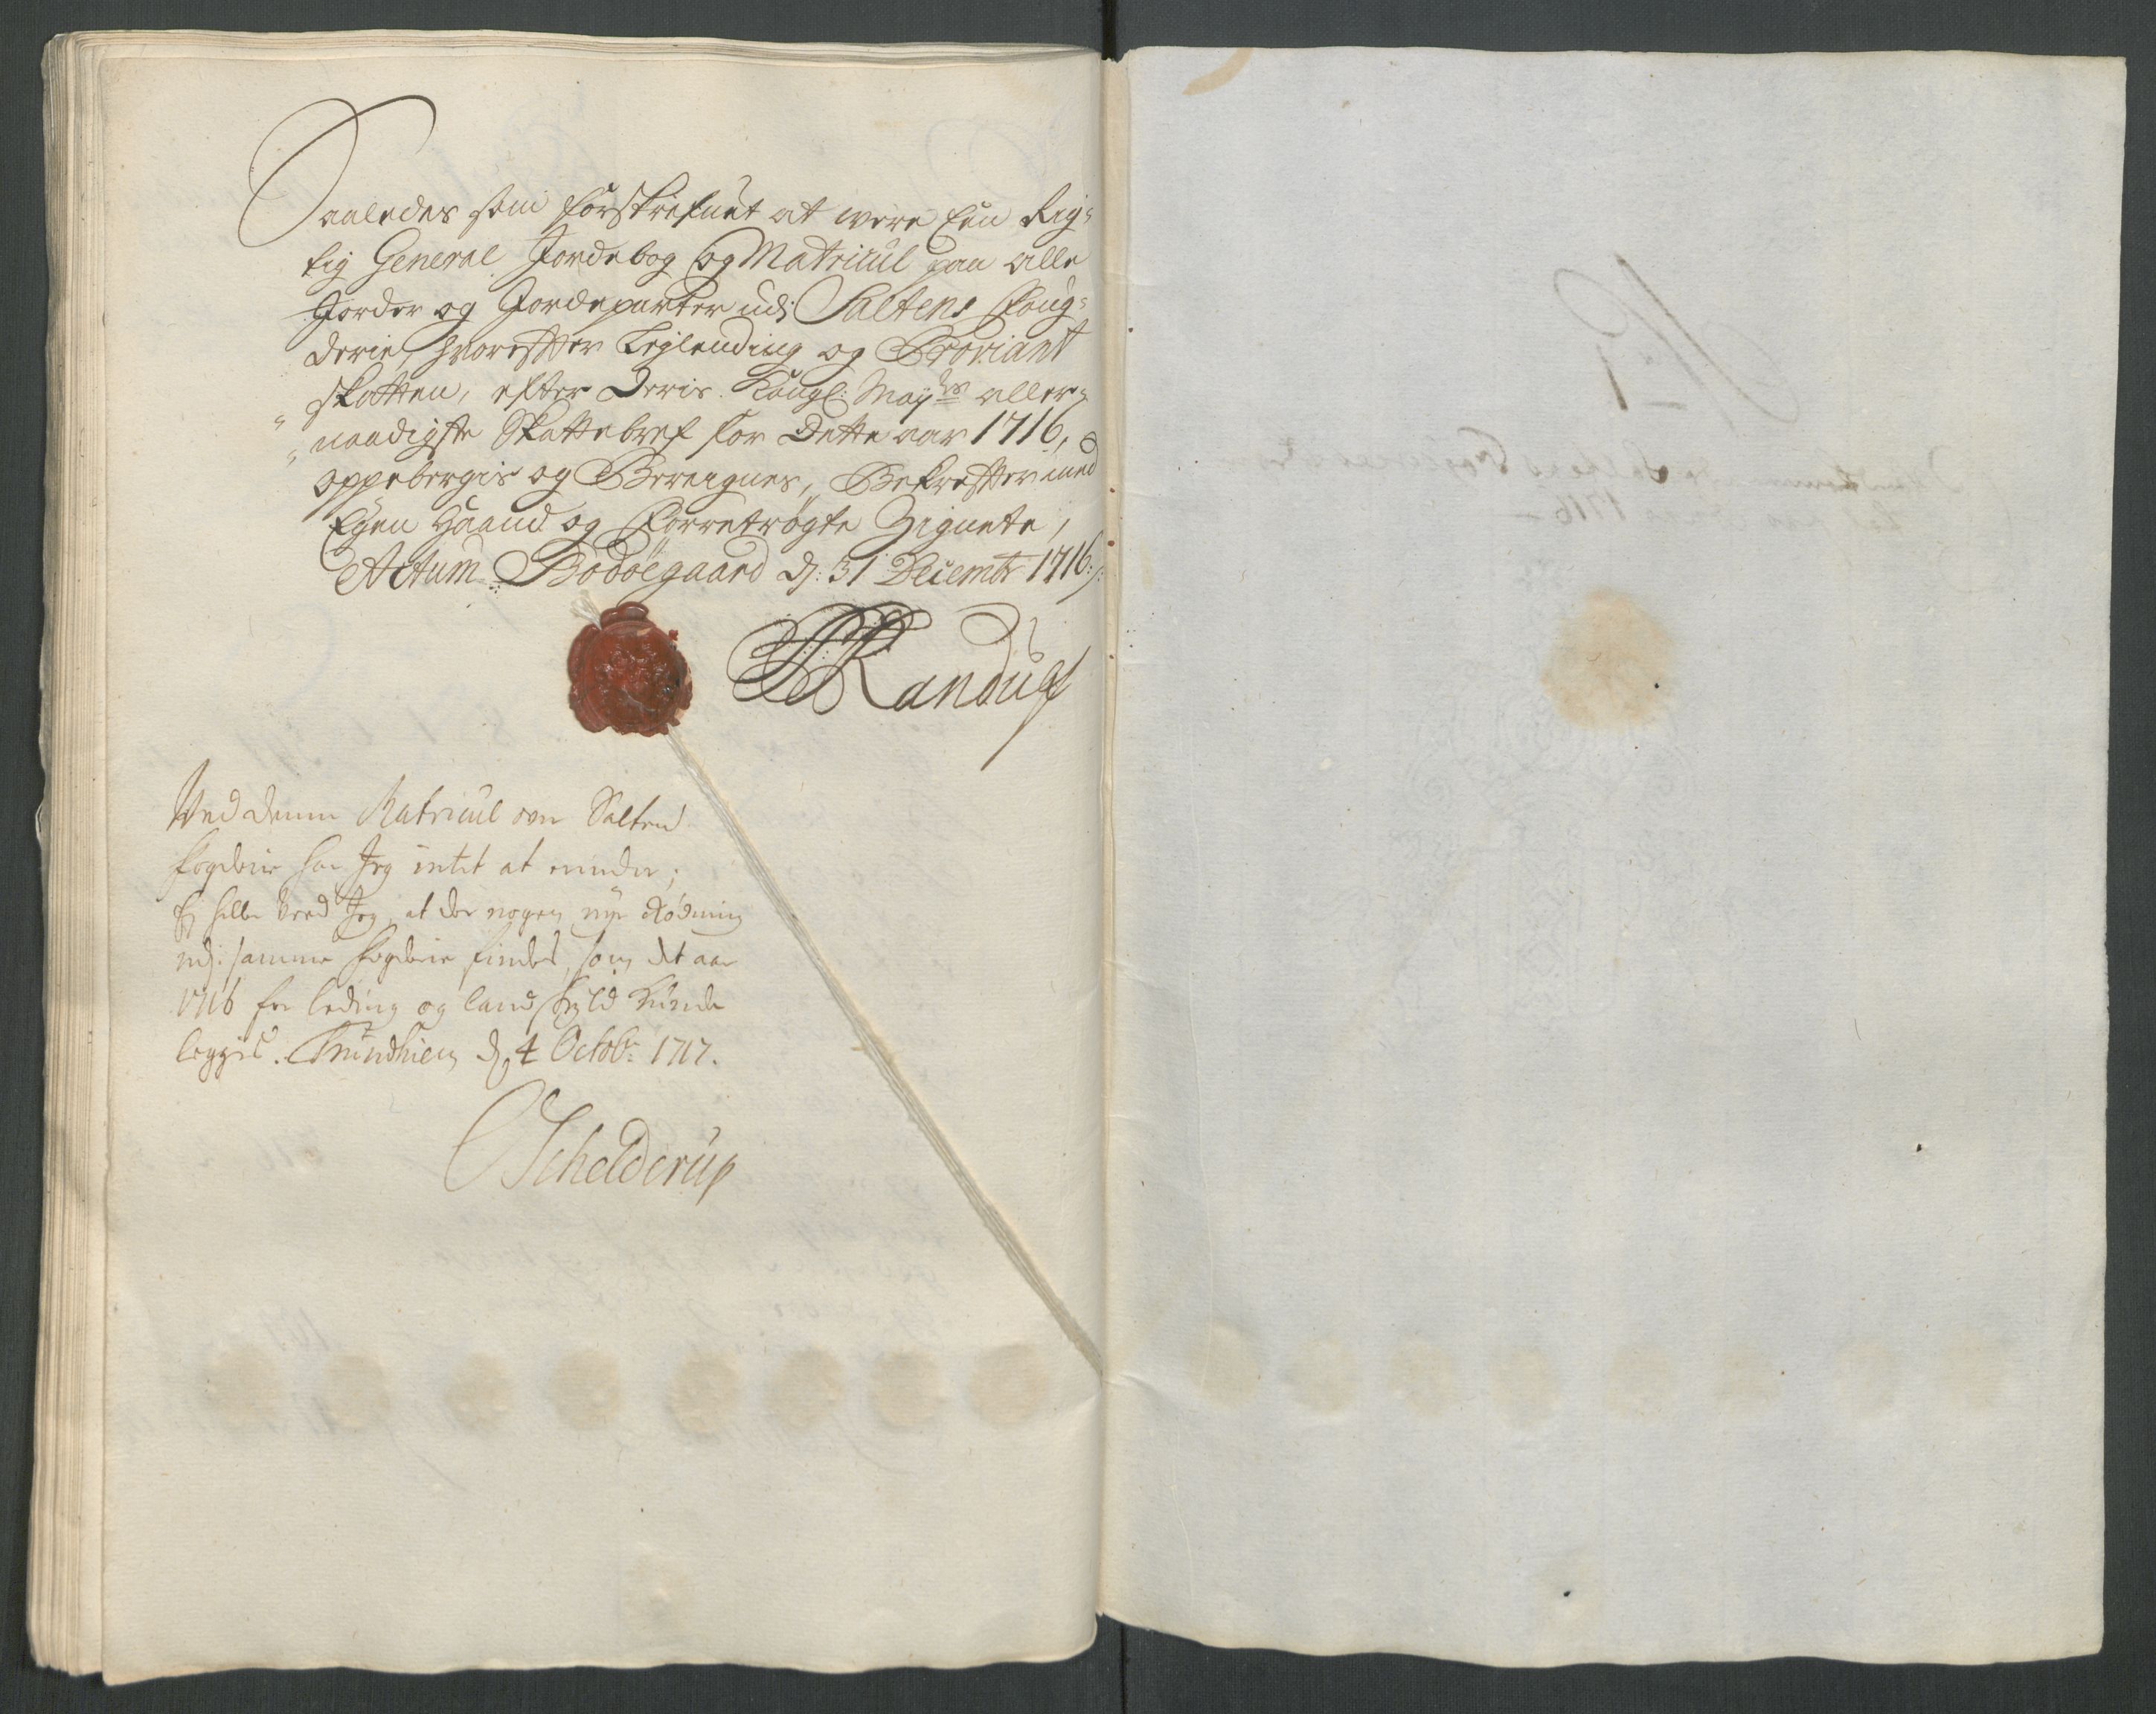 Saaledes som forskrefuet at were Een Rig-
tig General Jordebog og Matricul paa alle
Jorder og Jordeparter udj Saltens foug-
derie, hvorefter Leylending og Proviant
skatten, efter Deris Kongl: Mayts aller-
naadigste Skattebref for Dette aar 1716,
oppebergis og Bereignes, Bekrefter med
Egen Haand og forretrögte Zignete,
Actum Bodöegaard d: 31 Decembr 1716:/:
Randulf
Ved denne Matricul over Salten
fogderie har Jeg intet at minde;
Ej heller veed Jeg, at der nogen nye Rödning
udj: samme fogderie findes, som dit aar
1716 for leding og landskyld kunde
leggis. Trundhiem d. 4 Octobr: 1717.
Schelderup
No 7
1716